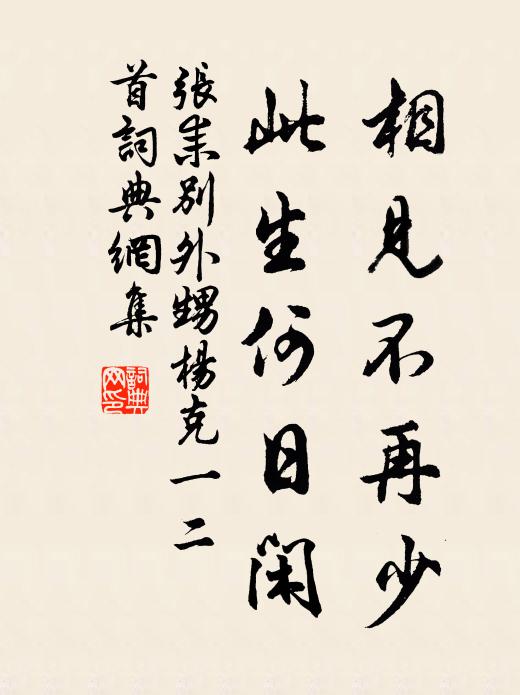 相見不再少
此生何日閑
張耒別外甥楊克一二
首詞典網集
詞典網印